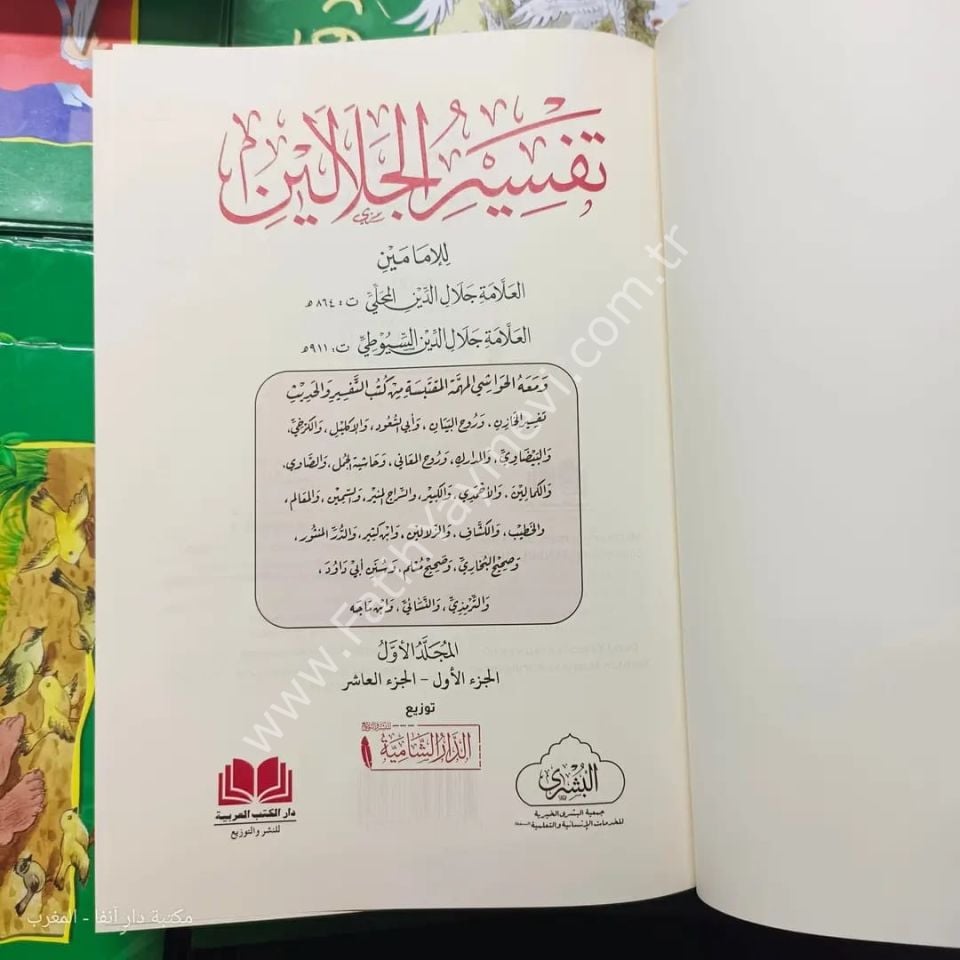 تَفْسِيرُ الجَلَالَيْنِ
لِلإمَامَيْنِ
العَلَّامَة جَلَال الدِّين المَحَلِّي ت: ٨٦٤ هـ
العَلَّامَة جَلَال الدِّين السِّيُوطِيّ ت: ٩١١ هـ
وَمَعَهُ الحَوَاشِي المُهِمَّة المُقتَبَسَة مِن كُتُبِ التَّفْسِيرِ وَالحَدِيثِ
تَفسِير الخَازِن، وَرُوح البَيَان، وَأبي السُّعُود، وَالإكْلِيْل، وَالكَرْخِيّ،
وَالبَيْضَاوِيّ، وَالمدَارك، وَرُوح المَعَاني، وَحَاشِيَة الجُمل، وَالصَّاوي،
وَالكمَالِيْن، وَالأحْمَدِي، وَالكَبِير، وَالسِّرَاج المُنِير، وَالسَّمِين، وَالمَعَالم،
وَالخَطِيْب، وَالكَشَّاف، وَالزُّلَالَيْن، وَابْن كَثِير، وَالدُّرّ المَنْثُور،
وَصَحِيْح البُخَارِيّ، وَصَحِيْح مُسْلِم، وَسُنَن أبي دَاوُدَ،
وَالتِّرمِذِيّ، وَالنَّسَائيّ، وَابْن مَاجَه
المُجَلَّدُ الأوَّلُ
الجزء الأول - الجزء العاشر
توزيع
الدَّارُ الشَّامِيَّة
دار الكتب العربية
للنشر والتوزيع
البُشْرَى
جمعية البشرى الخيرية
للخدمات الإنسانية والتعليمية
www.Fathyayinevi.com.tr
مكتبة دار آنفا - المغرب